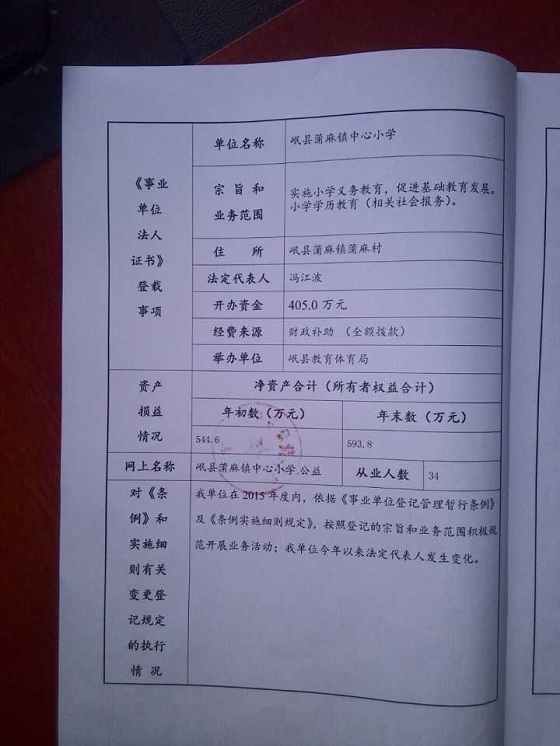 《事业
单位
法人
证书》
登载
事项
单位名称
岷县蒲麻镇中心小学
宗旨和
业务范围
实施小学义务教育，促进基础教育发展。
小学学历教育（相关社会报务）。
住所
岷县蒲麻镇蒲麻村
法定代表人
冯江波
开办资金
405.0 万元
经费来源
财政补助（全额拨款）
举办单位
岷县教育体育局
资产
损益
情况
净资产合计（所有者权益合计）
年初数（万元）
年末数（万元）
544.6
593.8
网上名称
岷县蒲麻镇中心小学.公益
从业人数
34
对《条
例》和
实施细
则有关
变更登
记规定
的执行
情况
我单位在 2015 年度内，依据《事业单位登记管理暂行条例》
及《条例实施细则规定》，按照登记的宗旨和业务范围积极规
范开展业务活动；我单位今年以来法定代表人发生变化。